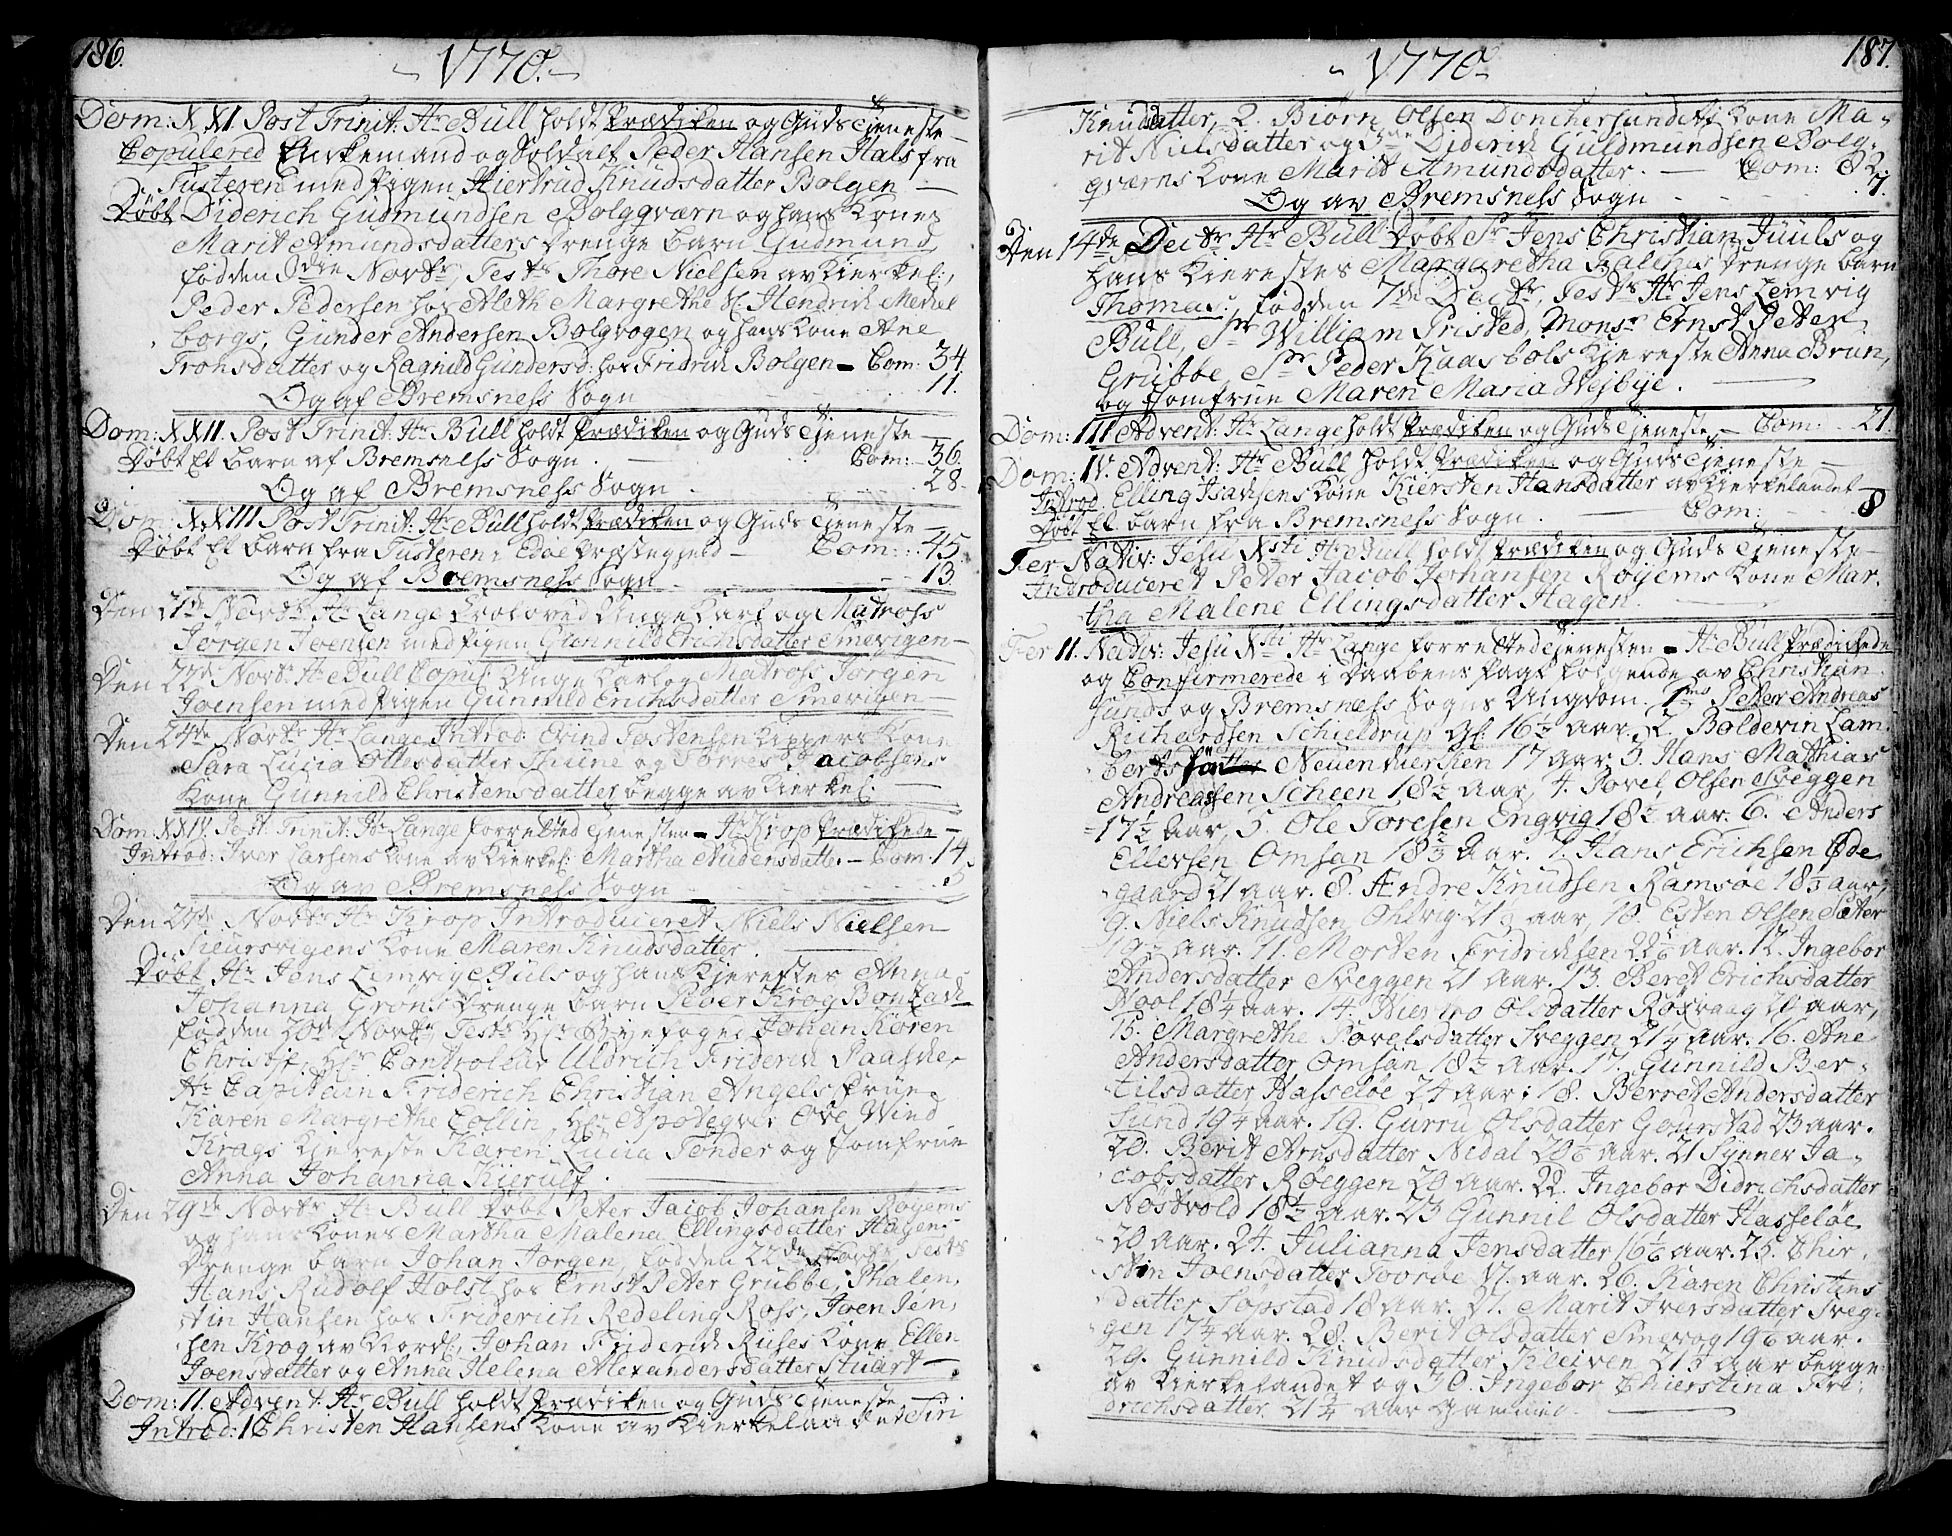 186.
1770.
Dom: XXI. Post Trinit: Hr Bull holdt Prædiken og Guds Tieneste
Copulered Enkemand og Soldat Peder Hansen Hals fra
Tusteren med Pigen Hiertrud Knudsdatter Bolgen
Døbt Diderich Gudmundsen Bolgqværn og hans Kones
Marit Amundsdatters Drenge Barn Gudmund
fød den Novbr, Tests Thore Nielsen av Kierkel:,
Peder Pedersen hos Aleth Margrethe Sl. Hendrich Meckel
borgs, Gunder Andersen Bolgvogen og hans Kone Ane
Tronsdatter og Ragnild Gundersd: hos Fridrich Bolgen - Com: 34.
Og af Bremsness Sogn 11.
Dom: XXII. Post Trinit: Hr Bull holdt Prædiken og Guds Tieneste
Døbt Et Barn af Bremsness Sogn. Com: 36
Og af Bremsness Sogn 28
Dom: XXIII Post Trinit: Hr Bull holdt Prædiken og Guds Tieneste
Døbt Et Barn fra Tusteren i Edøe Præstegield Com: 45.
Og af Bremsness Sogn 13
Den Novbr Hr Lange Troloved Unge Karl og Matross
Jørgen Joensen med Pigen Gunnild Erichsdatter Smevigen
Den 22de Novbr Hr Bull Copul: Unge Karl og Matross Jørgen
Joensen med Pigen Gunnild Erichsdatter Smevigen
Den 24de Novbr Hr Lange Introd: Evind Tostensen Kone
Sara Lucia Ottesdatter Thune og Torres Jacobsens
Kone Gunnild Christensdatter begge av Kierkel:
Dom: XXIV. Post Trinit: Hr Lange forretted Tienesten - Hr Krop Prædikede
Introd: Iver Larsens Kone av Kierkel: Martha Audensdatt: - Com: 14.
Og av Bremsness Sogn 5
Den 27de Novbr Hr Krop Introduceret Niels Nielsen
Kone Maren Knudsdatter.
Døbt Hr Jens Lemvig Buls og hans Kierestes Anna
Johanna Grøns Drenge Barn Peder Krog
fød den 20de Novbr Tests Hr Byefoged Johan Koren
Christ:, Hr Controleur Uldrich Friderich Paaske,
Hr Capitain Friderich Christian Angels Frue
Karen Margrethe Collin, Hr Apoteqver Ove Wind
Krags Kiereste Karen Lucia Tønder og Jomfrue
Anna Johanna Kierulf.
Den 29de Novbr Hr Bull Døbt Peter Jacob Johansen Røyems
og hans Kones Martha Malena Ellingsdatter Hagens
Drenge Barn Johan Jørgen, fød den 22de Novbr Tests
Hans Rudolf Holst hos Ernst Peter Grubbe,
tin Hansen hos Friderich Redeling Ross, Joen Jen
sen Krog av Nordl:, Johan Friderich Ruses Kone Ellen
Joensdatter og Anna Helena Alexandersdatter Stuart
Dom: II. Advent: Hr Bull holdt Prædiken og Guds Tieneste
Introd: 1 Christen Hansens Kone av Kierkelandet Siri
187.
1770
Knudsdatter, 2. Biørn Olsen Donchersundets Kone Ma-
rit Nielsdatter og 3 Diderich Guldmundsen Bolg-
qværns Kone Marit Amundsdatter. Com: 82.
Og av Bremsness Sogn 7
Den 14de Decbr Hr Bull Døbt Sr Jens Christian Juuls og
hans Kierestes Margaretha Drenge Barn
Thomas, fød den 7de Decbr, Tests Hr Jens Lemvig
Bull, Sr William Pristed, Monsr Ernst Peter
Grubbe, Sr Peder Kaasbols Kiereste Anna Brun,
og Jomfrue Maren Maria Wejbye.
Dom: III Advent: Hr Lange holdt Prædiken og Guds Tieneste - Com: 21.
Dom: IV. Advent: Hr Bull holdt Prædiken og Guds Tieneste
Introd Elling Isachsens Kone Kiersten Hansdatter av Kierkelandet
Døbt Et Barn fra Bremsness Sogn. Com: 8
Fer Nativ: Jesu Xsti Hr Bull holdt Prædiken og Guds Tieneste
Introduceret Peter Jacob Johansen Røyems Kone Mar-
tha Malene Ellingsdatter Hagen.
Fer II. Nativ: Jesu Xsti Hr Lange forretted Tienesten - Hr Bull Prædikede
og Confirmerede i Daabens Pagt følgende av Christian
sunds og Bremsness Sogns Ungdom. 1mo Peter Andreas
Richardsen Schieldrup Gl. 16½ aar, 2. Boldevin Lam
berts Neuenwerken 17 aar, 3. Hans Mathias
Andreassen Scheen 18½ aar, 4. Povel Olsen Sveggen
17½ aar, 5. Ole Toresen Engvig 18½ aar. 6. Anders
Ellevsen Omsan 18½ aar. 7. Hans Erichsen Øde
gaard 21 aar. 8. Andre Knudsen Ramsøe 18½ aar,
9. Niels Knudsen Ohlvig 21½ aar, 10. Esten Olsen Sæter
19½ aar. 11. Morten Fridrichsen 22 aar. 12. Ingebor
Andersdatter Sveggen 21 aar. 13. Beret Erichsdatter
Vool 18¼ aar. 14. Olsdatter Røsvaag 20 aar,
15. Margrethe Povelsdatter Sveggen 21¼ aar. 16. Ane
Andersdatter Omsan 18½ aar. 17. Gunnild Ber-
tilsdatter Hasseløe 24 aar; 18. Berret Andersdatter
Sund 19¼ aar. 19. Gurru Olsdatter Gourstad 23 aar.
20. Berit Arnsdatter Nedal 20 aar. 21 Synner Ja-
cobsdatter Røeggen 20 aar. 22. Ingebor Didrichsdatter
Nøstvold 18½ aar. 23 Gunnil Olsdatter Hasseløe
20 aar. 24. Julianna Jensdatter 16 aar. 25. Chir-
stin Joensdatter 17. aar. 26. Karen Christens
datter Søpstad 18 aar. 27. Marit Iversdatter Sveg-
gen 17¼ aar. 28. Berit Olsdatter Smevog 19 aar.
29. Gunnild Knudsdatter Kleiven 21½ aar begge
av Kierkelandet og 30. Ingebor Chierstina Fri-
drichsdatter 21¼ aar gammel.